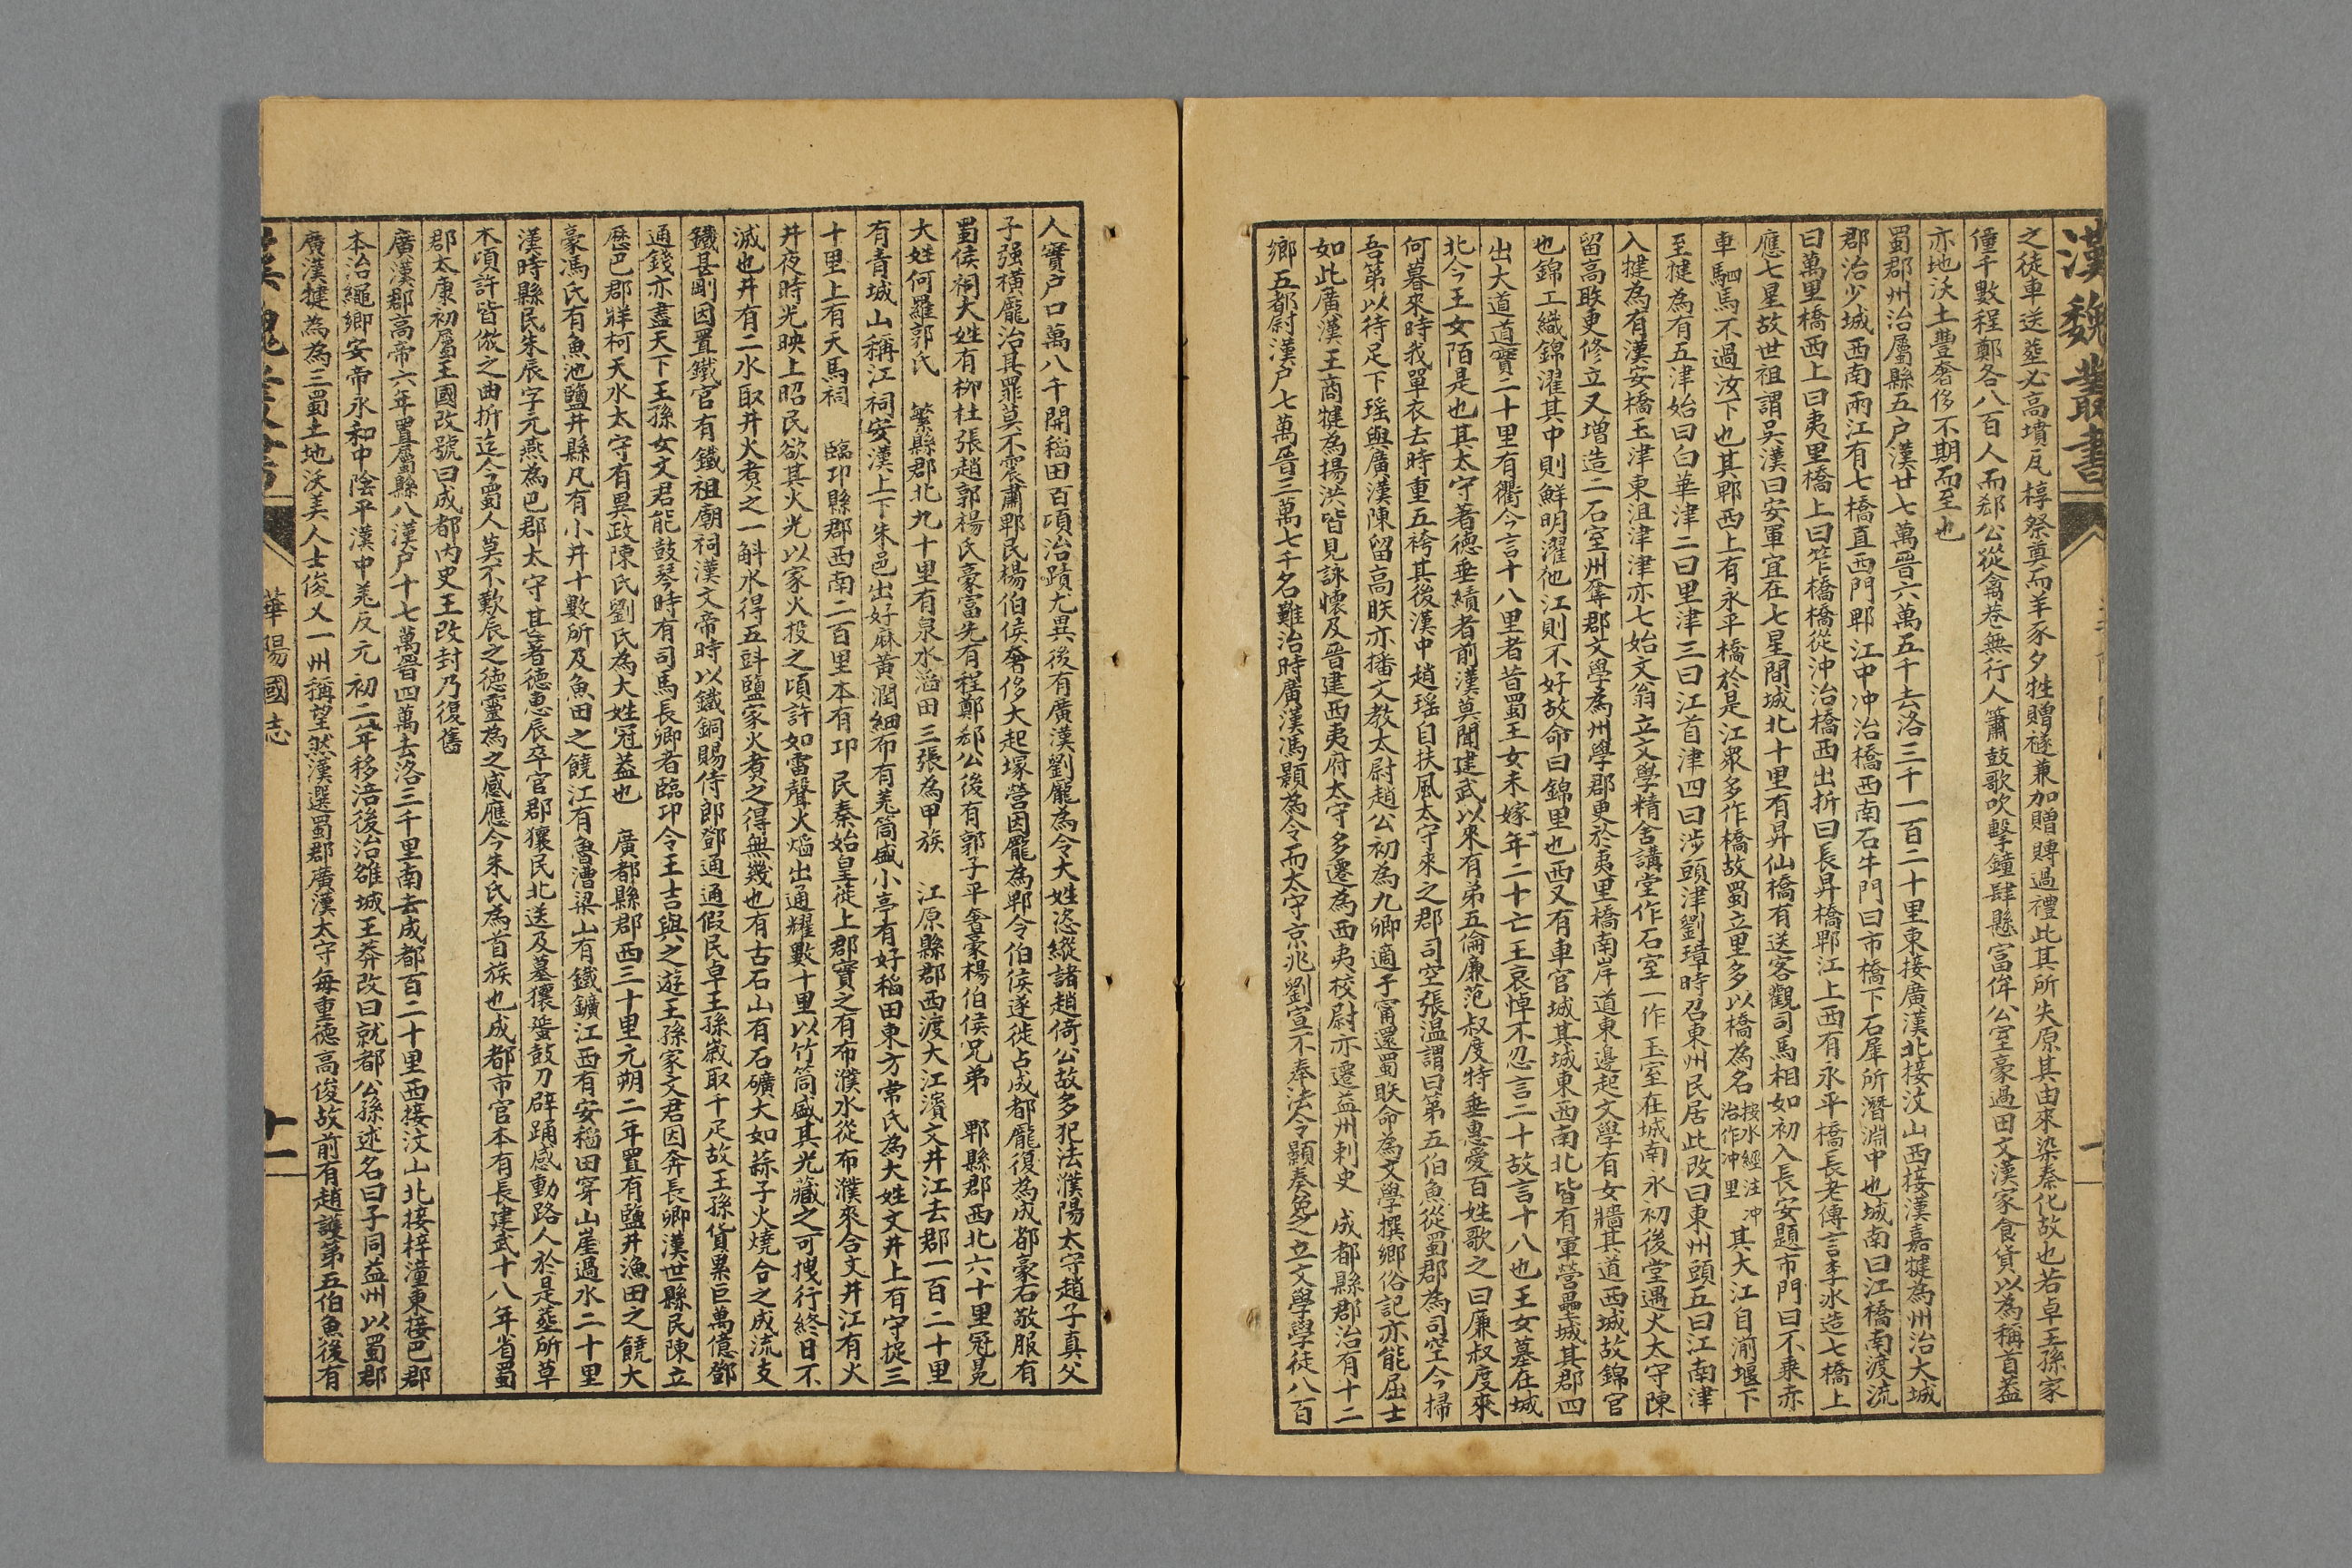 漢魏叢書
之徒車送塟必高墳瓦椁祭奠而羊豕夕牲贈襚兼加賵賻過禮此其所失原其由來染秦化故也若卓王孫家
僮千數程鄭各八百人而郄公從禽巷無行人簫鼓歌吹擊鐘肆懸富侔公室豪過田文漢家食貨以為稱首蓋
亦地沃土豐奢侈不期而至也
蜀郡州治屬縣五户漢廿七萬晉六萬五千去洛三千一百二十里東接廣漢北接汶山西接漢嘉犍為州治大城
郡治少城西南兩江有七橋直西門郫江中冲治橋西南石牛門曰市橋下石犀所潛淵中也城南曰江橋南渡流
曰萬里橋西上曰夷里橋上曰笮橋橋從沖治橋西出折曰長昇橋郫江上西有永平橋長老傳言李冰造七橋上
應七星故世祖謂吳漢曰安軍宜在七星間城北十里有昇仙橋有送客觀司馬相如初入長安題市門曰不乘赤
車駟馬不過汝下也其郫西上有永平橋於是江衆多作橋故蜀立里多以橋為名按水經注冲治作冲里其大江自湔堰下
至犍為有五津始曰白華津二曰里津三曰江首津四曰涉頭津劉璋時召東州民居此改曰東州頭五曰江南津
入犍為有漢安橋玉津東沮津津亦七始文翁立文學精舍講堂作石室一作玉室在城南永初後堂遇火太守陳
留高䀢更修立又増造二石室州奪郡文學為州學郡更於夷里橋南岸道東邊起文學有女牆其道西城故錦官
也錦工織錦濯其中則鮮明濯他江則不好故命曰錦里也西又有車官城其城東西南北皆有軍營壘城其郡四
出大道道實二十里有衢今言十八里者昔蜀王女未嫁年二十亡王哀悼不忍言二十故言十八也王女墓在城
北今王女陌是也其太守著德垂績者前漢莫聞建武以來有弟五倫廉范叔度特垂惠愛百姓歌之曰廉叔度來
何暮來時我單衣去時重五袴其後漢中趙瑶自扶風太守來之郡司空張温謂曰第五伯魚從蜀郡為司空今掃
吾第以待足下瑶與廣漢陳留高䀢亦播文教太尉趙公初為九卿適子甯還蜀䀢命為文學撰鄉俗記亦能屈士
如此廣漢王商犍為揚洪皆見詠懷及晉建西夷府太守多遷為西夷校尉亦遷益州刺史 成都縣郡治有十二
鄉五都尉漢户七萬晉三萬七千名難治時廣漢馮顥為令而太守京兆劉宣不奉法令顥奏免之立文學學徒八百
人實户口萬八千開稻田百頃治蹟尤異後有廣漢劉龐為令大姓恣縱諸趙倚公故多犯法濮陽太守趙子真父
子强橫龐治其罪莫不震肅郫民楊伯侯奢侈大起塚營因龐為郫令伯侯遂徙占成都龐復為成都豪右敬服有
蜀侯祠大姓有柳杜張趙郭楊氏豪富先有程鄭郄公後有郭子平奢豪楊伯侯兄弟 郫縣郡西北六十里冠冕
大姓何羅郭氏 繁縣郡北九十里有泉水滔田三張為甲族 江原縣郡西渡大江濱文井江去郡一百二十里
有青城山稱江祠安漢上下朱邑出好麻黃潤細布有羌筒盛小亭有好稻田東方常氏為大姓文井上有守捉三
十里上有天馬祠 臨邛縣郡西南二百里本有邛民秦始皇徙上郡實之有布濮水從布濮來合文井江有火
井夜時光映上昭民欲其火光以家火投之頃許如雷聲火熖出通耀數十里以竹筒盛其光藏之可拽行終日不
滅也井有二水取井火煮之一斛水得五㪷鹽家火煮之得無幾也有古石山有石礦大如蒜子火燒合之成流支
鐵甚剛因置鐵官有鐵祖廟祠漢文帝時以鐵銅賜侍郎鄧通通假民卓王孫嵗取千疋故王孫貨累巨萬億鄧
通錢亦盡天下王孫女文君能鼓琴時有司馬長卿者臨邛令王吉與之遊王孫家文君因奔長卿漢世縣民陳立
歷巴郡牂柯天水太守有異政陳氏劉氏為大姓冠蓋也 廣都縣郡西三十里元朔二年置有鹽井漁田之饒大
豪馮氏有魚池鹽井縣凡有小井十數所及魚田之饒江有魯漕梁山有鐵鑛江西有安稻田穿山崖過水二十里
漢時縣民朱辰字元燕為巴郡太守甚著德惠辰卒官郡獽民北送及墓獽蜑鼓刀辟踊感動路人於是塟所草
木頃許皆倣之曲折迄今蜀人莫不歎辰之德靈為之感應今朱氏為首族也成都市官本有長建武十八年省蜀
郡太康初屬王國改號曰成都内史王改封乃復舊
廣漢郡高帝六年置屬縣八漢户十七萬晉四萬去洛三千里南去成都百二十里西接汶山北接梓潼東接巴郡
本治繩鄉安帝永和中陰平漢中羌反元初二年移涪後治雒城王莽改曰就都公孫述名曰子同益州以蜀郡
廣漢犍為為三蜀土地沃美人士俊乂一州稱望然漢選蜀郡廣漢太守每重德高俊故前有趙護第五伯魚後有
漢魏叢書
華陽國志
十一